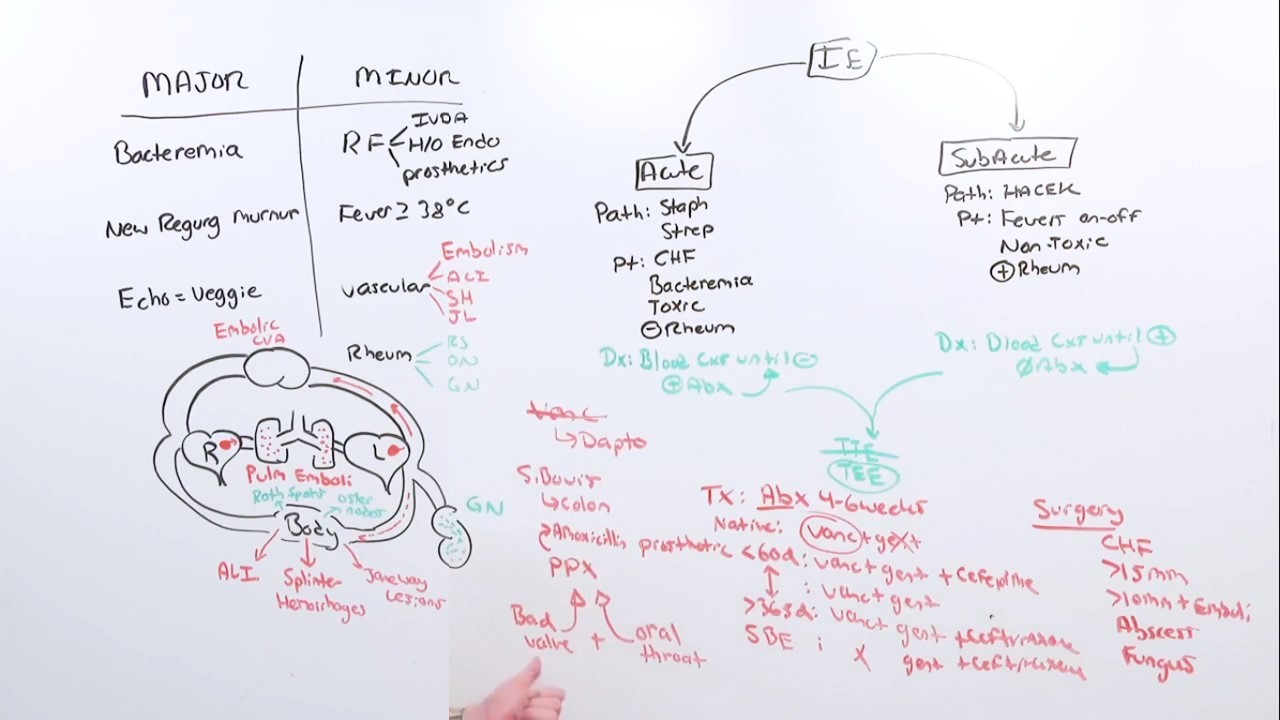 MAJOR
MINOR
Bacteremia
RF
IVDA
H/O Endo
prosthetics
New Regurg murmur
Fever ≥ 38°C
Echo = Veggie
vascular
Embolism
ALI
SH
JL
Rheum
RS
ON
GN
Embolic
CVA
R
L
Pulm Emboli
Roth Spots
osler
nodes
Body
GN
ALI
Splinter
Hemorrhages
Janeway
Lesions
IE
Acute
Path: Staph
Strep
Pt: CHF
Bacteremia
Toxic
⊖ Rheum
Dx: Blood Cx until ⊖
⊕ Abx
SubAcute
Path: HACEK
Pt: Fevers on-off
Non-Toxic
⊕ Rheum
Dx: Blood Cx until ⊕
Ø Abx
TTE
TEE
Vanc
↳ Dapto
S. Bovis
↳ Colon
Amoxicillin
PPX
Bad
valve
+
oral
throat
Tx: Abx 4-6 weeks
Native: Vanc + gent
prosthetic <60d: vanc + gent + Cefepime
: vanc + gent
>365d: vanc + gent + Ceftriaxone
SBE : X gent + Ceftriaxone
Surgery
CHF
>15mm
>10mm + Emboli
Abscess
Fungus